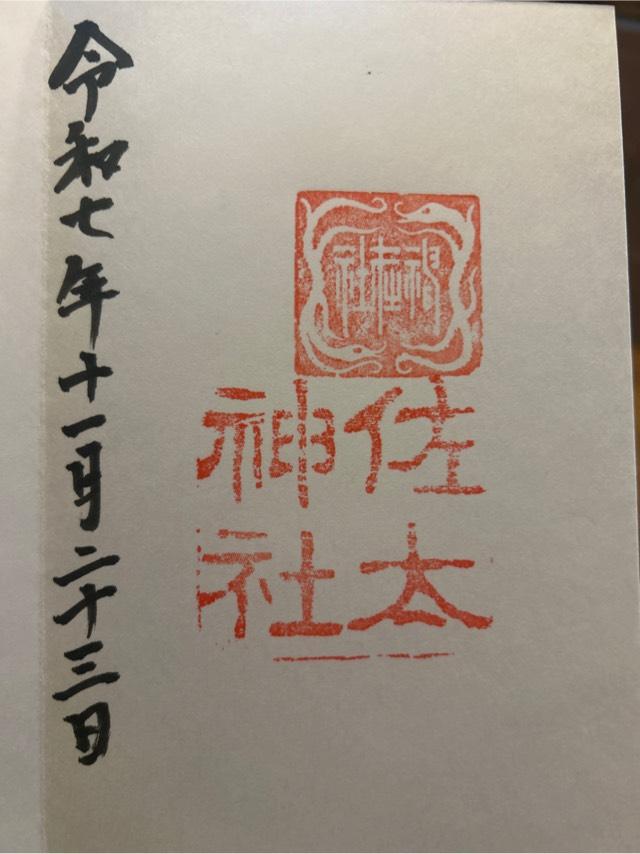 神在社
佐太
神社
令和七年十一月二十三日